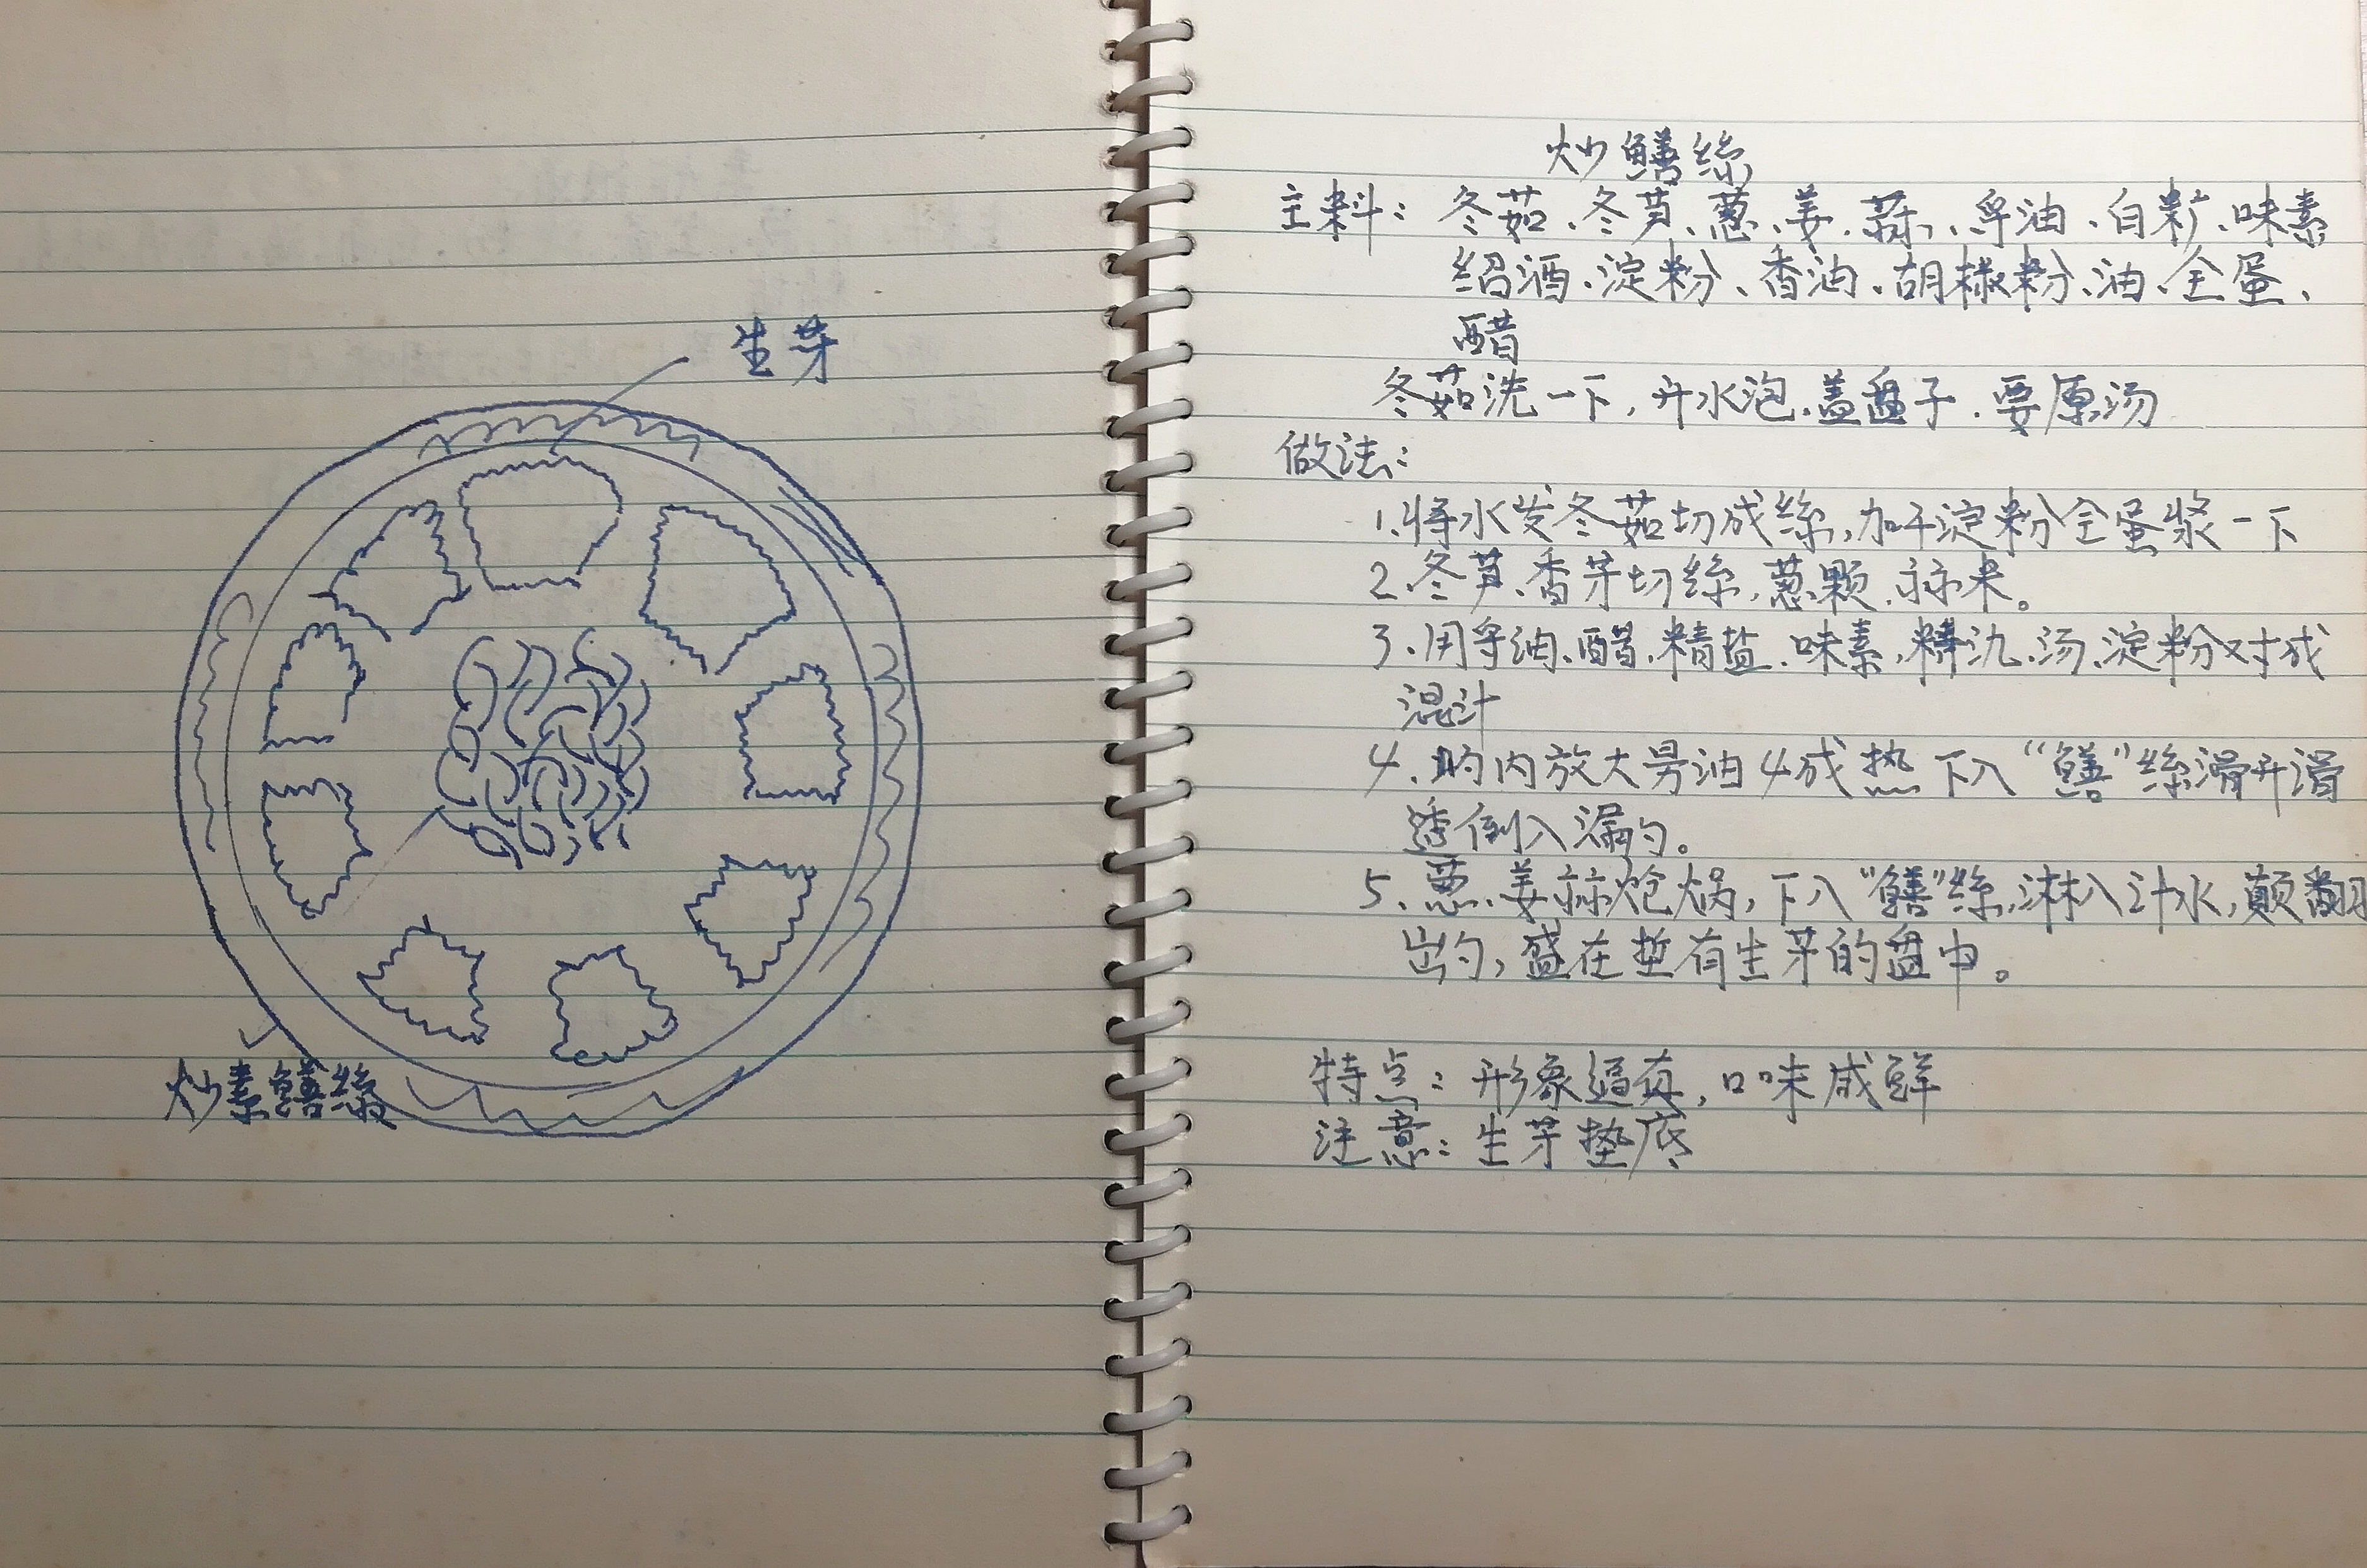 生芽
炒素鳝絲
炒鳝絲
主料：冬茹、冬芛、葱、姜、蒜、孚油、白粆、味素
绍酒、淀粉、香油、胡椒粉、油、全蛋、
醋
冬茹洗一下，开水泡、盖盘子、要原汤
做法：
1、将水发冬茹切成絲，加干淀粉全蛋浆一下
2、冬芛、香芽切絲，葱颗、蒜末。
3、用孚油、醋、精盐、味素、汤、淀粉对成
混汁
4、内放大号油4成热下入“鳝”絲滑开滑
透倒入漏勺。
5、葱、姜蒜炝焗，下入“鳝”絲，淋入汁水，颠翻
出勺，盛在垫有生芽的盘中。
特点：形象逼真，口味咸鲜
注意：生芽垫底